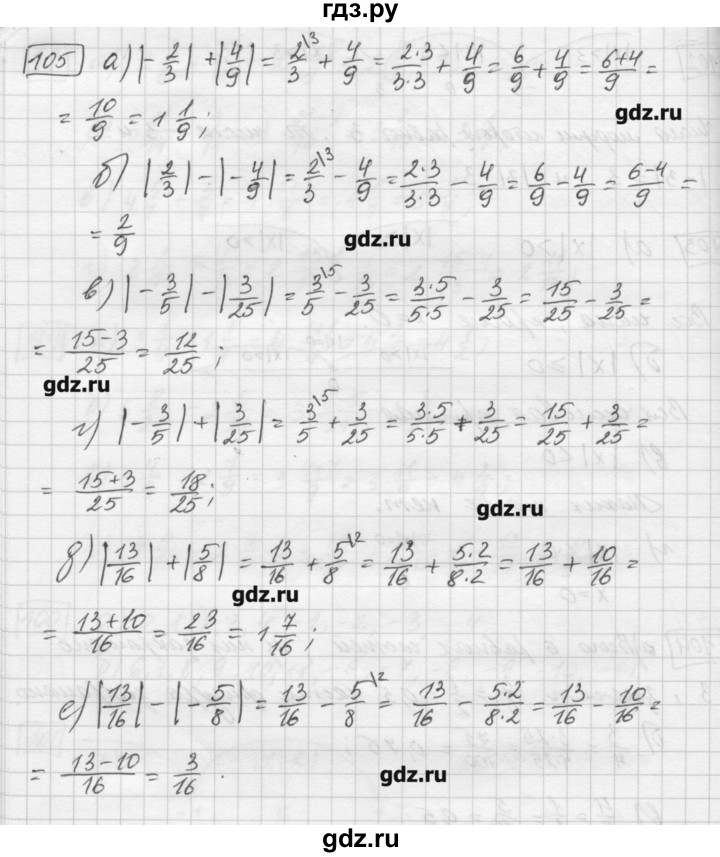 гдз.ру
105 а) |-2/3| + |4/9| = 2\3/3 + 4/9 = 2·3/3·3 + 4/9 = 6/9 + 4/9 = 6+4/9 =
= 10/9 = 1 1/9;
gdz.ru
б) |2/3| - |-4/9| = 2\3/3 - 4/9 = 2·3/3·3 - 4/9 = 6/9 - 4/9 = 6-4/9 =
= 2/9
gdz.ru
в) |-3/5| - |3/25| = 3\5/5 - 3/25 = 3·5/5·5 - 3/25 = 15/25 - 3/25 =
= 15-3/25 = 12/25;
gdz.ru
г) |-3/5| + |3/25| = 3\5/5 + 3/25 = 3·5/5·5 + 3/25 = 15/25 + 3/25 =
= 15+3/25 = 18/25;
gdz.ru
д) |13/16| + |5/8| = 13/16 + 5\2/8 = 13/16 + 5·2/8·2 = 13/16 + 10/16 =
gdz.ru
= 13+10/16 = 23/16 = 1 7/16;
е) |13/16| - |-5/8| = 13/16 - 5\2/8 = 13/16 - 5·2/8·2 = 13/16 - 10/16 =
= 13-10/16 = 3/16.
gdz.ru
gdz.ru